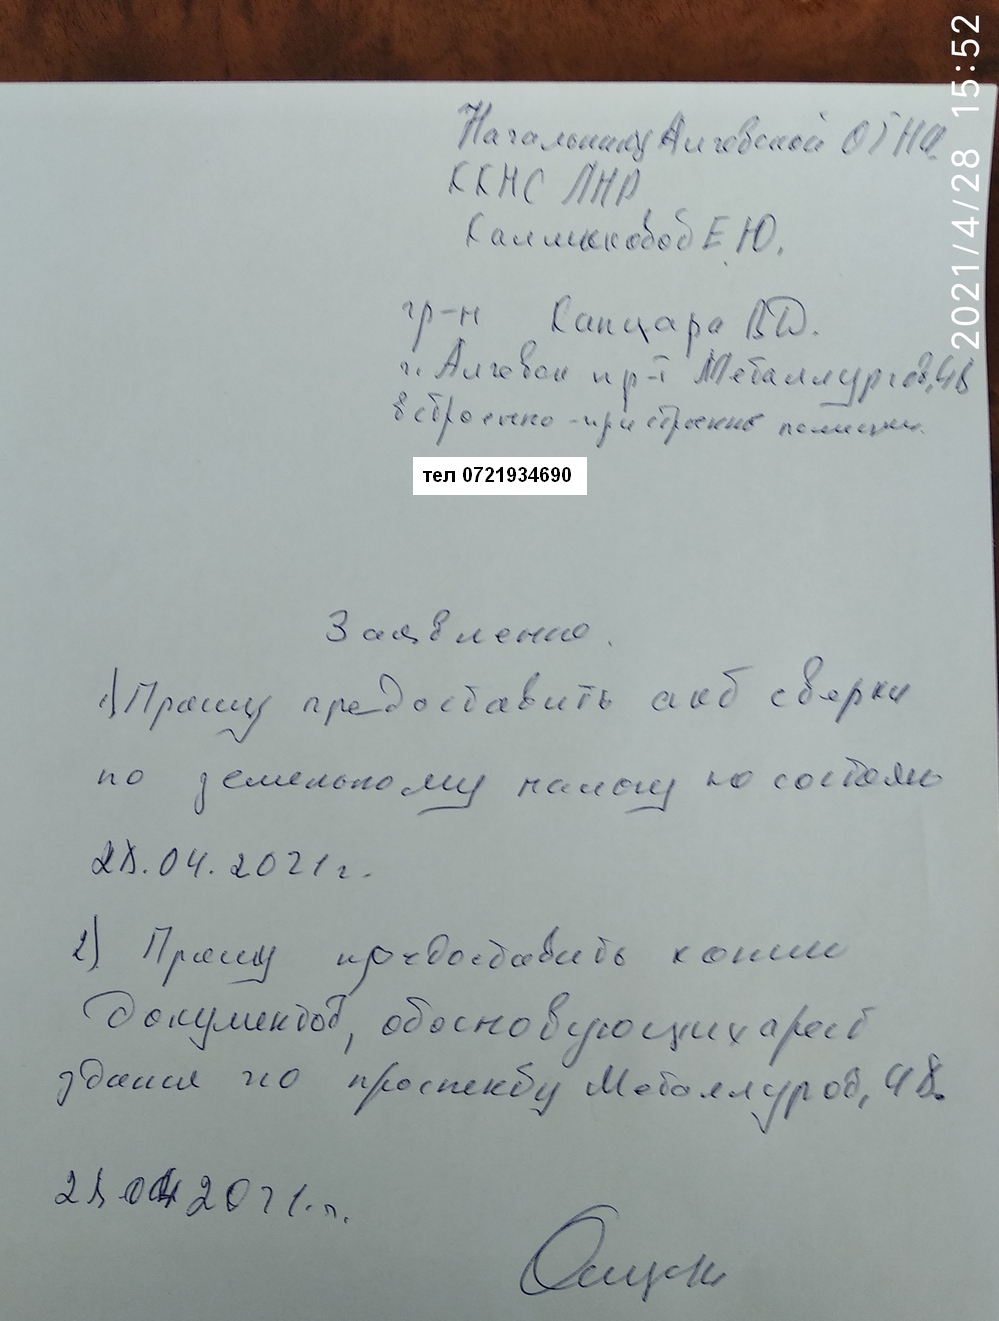 Начальнику Алчевской ОГНИ
ККНС ЛНР
Е.Ю.
гр-н Капцара В.Д.
г. Алчевск пр-т Металлургов, 48
встроенно-пристроенно помещен.
тел 0721934690
Заявление.
1) Прошу предоставить акт сверки
по земельному налогу по состоян
28.04.2021г.
2) Прошу предоставить копии
документов, обосновующих арест
здания по проспекту Металлургов, 48.
28.04 2021.г.
2021/4/28 15:52